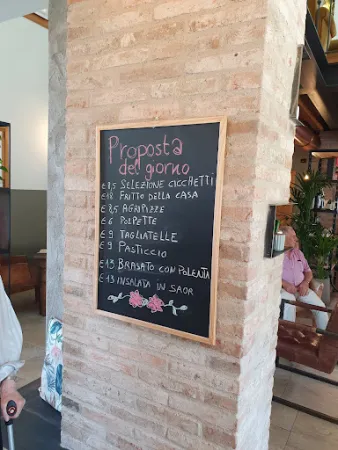 Proposta
del giorno
€ 8,5 SELEZIONE CICCHETTI
€ 18 FRITTO DELLA CASA
€ 8,5 AGRIPIZZE
€ 6 POLPETTE
€ 9 TAGLIATELLE
€ 9 PASTICCIO
€ 13 BRASATO CON POLENTA
€ 13 INSALATA IN SAOR